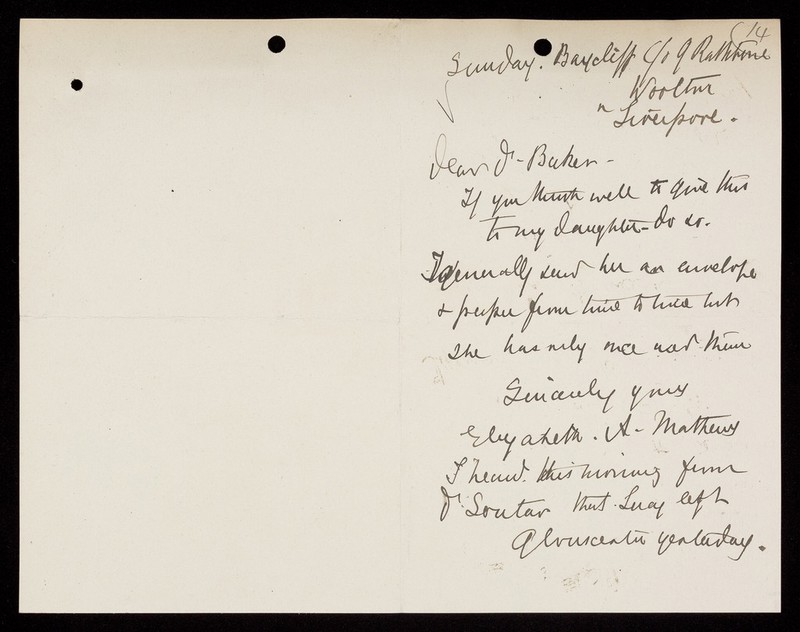 14
Sunday. Baycliff C/o G Rathbone
Woolton
n Liverpool.
Dear Dr Baker -
If you think well to give this
to my daughter - do so.
I generally send her an envelope
& paper from time to time but
she has only once used them
Sincerely yours
Elizabeth. A - Mathews
I heard this morning from
Dr Soutar that Lucy left
Gloucester yesterday.